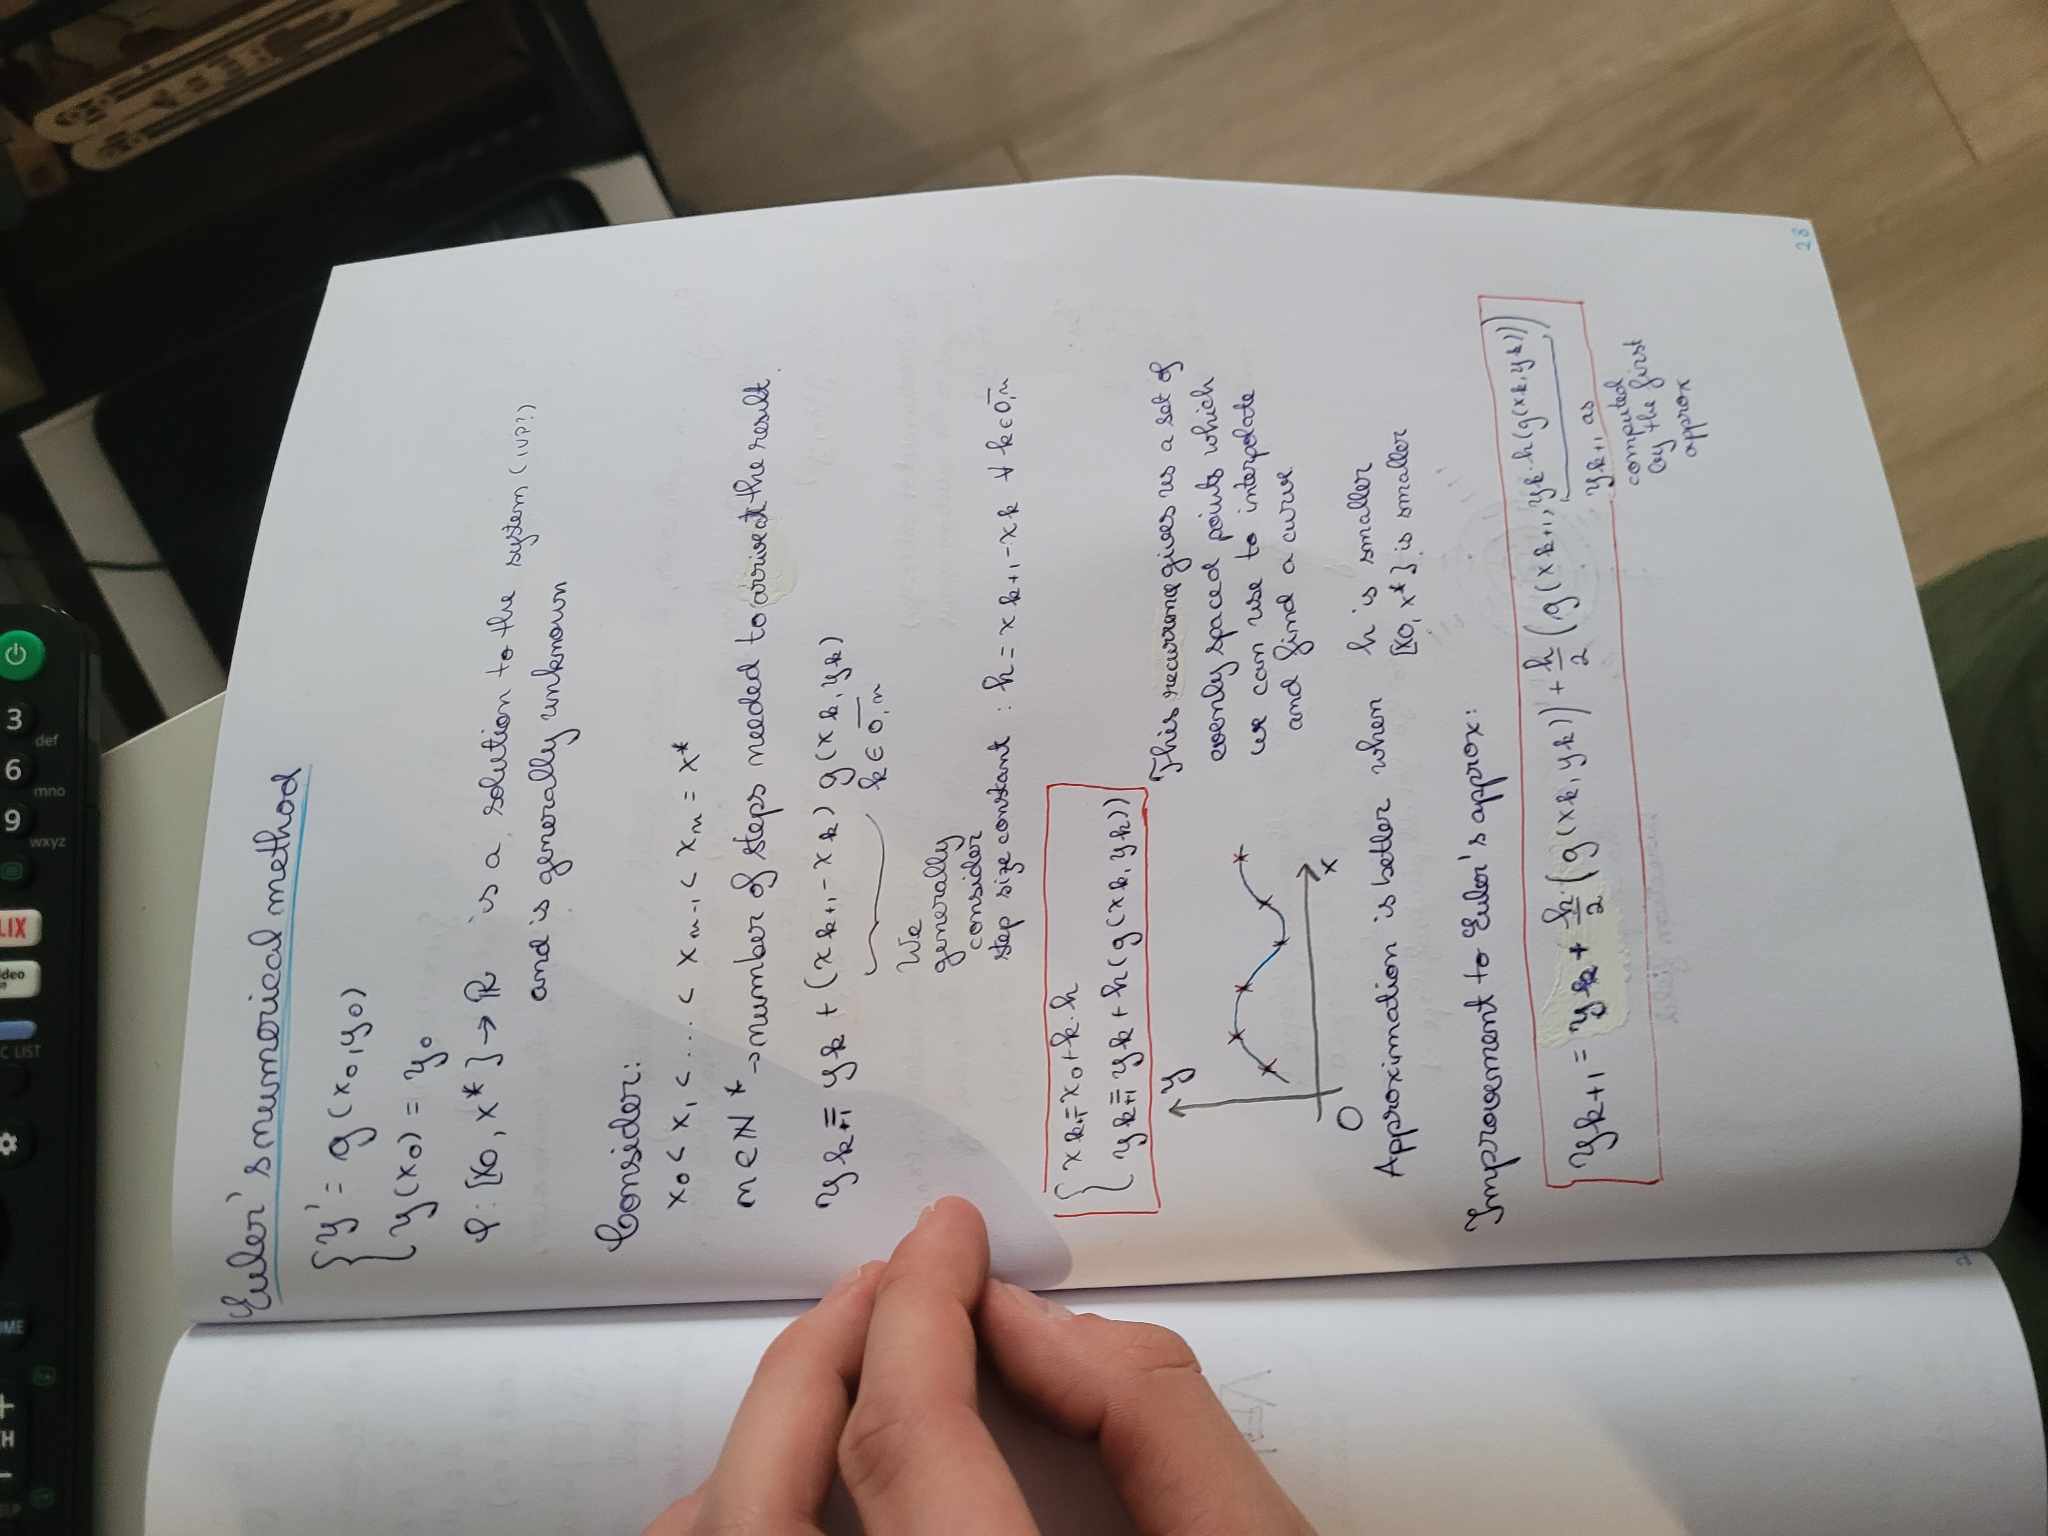 Euler's numerical method
{ y' = g(x0, y0)
{ y(x0) = y0
φ: [x0, x*] → ℝ is a solution to the system (IVP?)
and is generally unknown
Consider:
x0 < x1 < .... < xn-1 < xn = x*
n ∈ ℕ* → number of steps needed to arrive at the result.
yk+1 = yk + (xk+1 - xk) g(xk, yk)
k ∈ 0,n
We
generally
consider
step size constant : h = xk+1 - xk ∀ k ∈ 0,n
{ xk+1 = x0 + k·h
{ yk+1 = yk + h(g(xk, yk))
This recurring gives us a set of
evenly spaced points which
we can use to interpolate
and find a curve
y
O
x
Approximation is better when h is smaller
[x0, x*] is smaller
Improvement to Euler's approx:
yk+1 = yk + h/2 (g(xk, yk)) + h/2 (g(xk+1, yk·h(g(xk, yk)))
yk+1 as
computed
by the first
approx
28
3
def
6
mno
9
wxyz
LIX
LIST